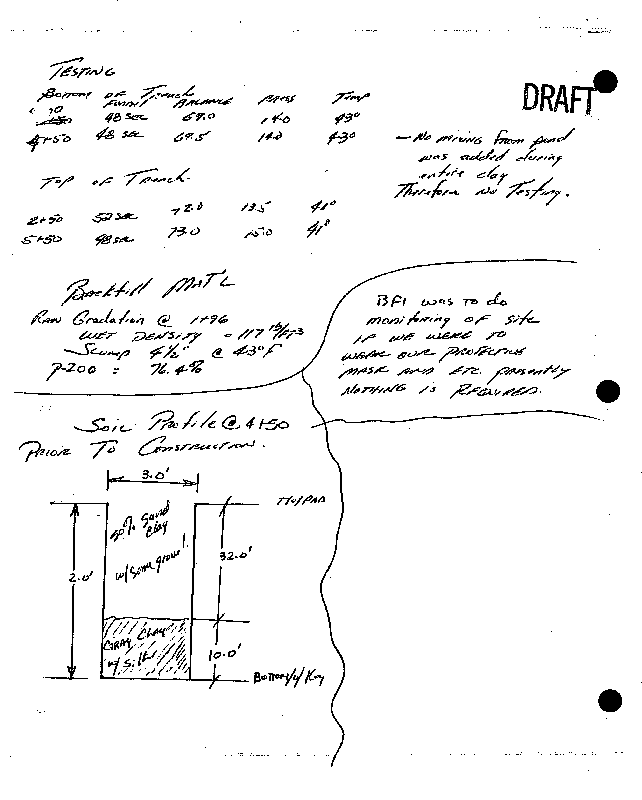 TESTING
DRAFT
BOTTOM OF Trench
FUNNEL BALANCE TEMP
48 sec 69.0 14.0 43°
4+50 48 sec 69.5 14.0 43°
— No mixing from pond
was added during
entire clay
Therefore No Testing.
TOP OF Trench.
2+50 52 sec 72.0 13.5 41°
5+50 48 sec 73.0 15.0 41°
Backfill MAT'L
RAN Gradation @ 1+96
WET DENSITY = 117 lb/FT3
— Slump 4½" @ 43°F
P-200 = 76.4%
BFI was to do
monitoring of site
IF WE WERE TO
WEAR OUR PROTECTIVE
MASK AND ETC. PRESENTLY
NOTHING IS REQUIRED.
Soil Profile @ 4+50
PRIOR TO CONSTRUCTION.
3.0'
50% Sand
Clay
w/ some gravel.
32.0'
2.0'
GRAY CLAY
w/ Silt
10.0'
Bottom of Key